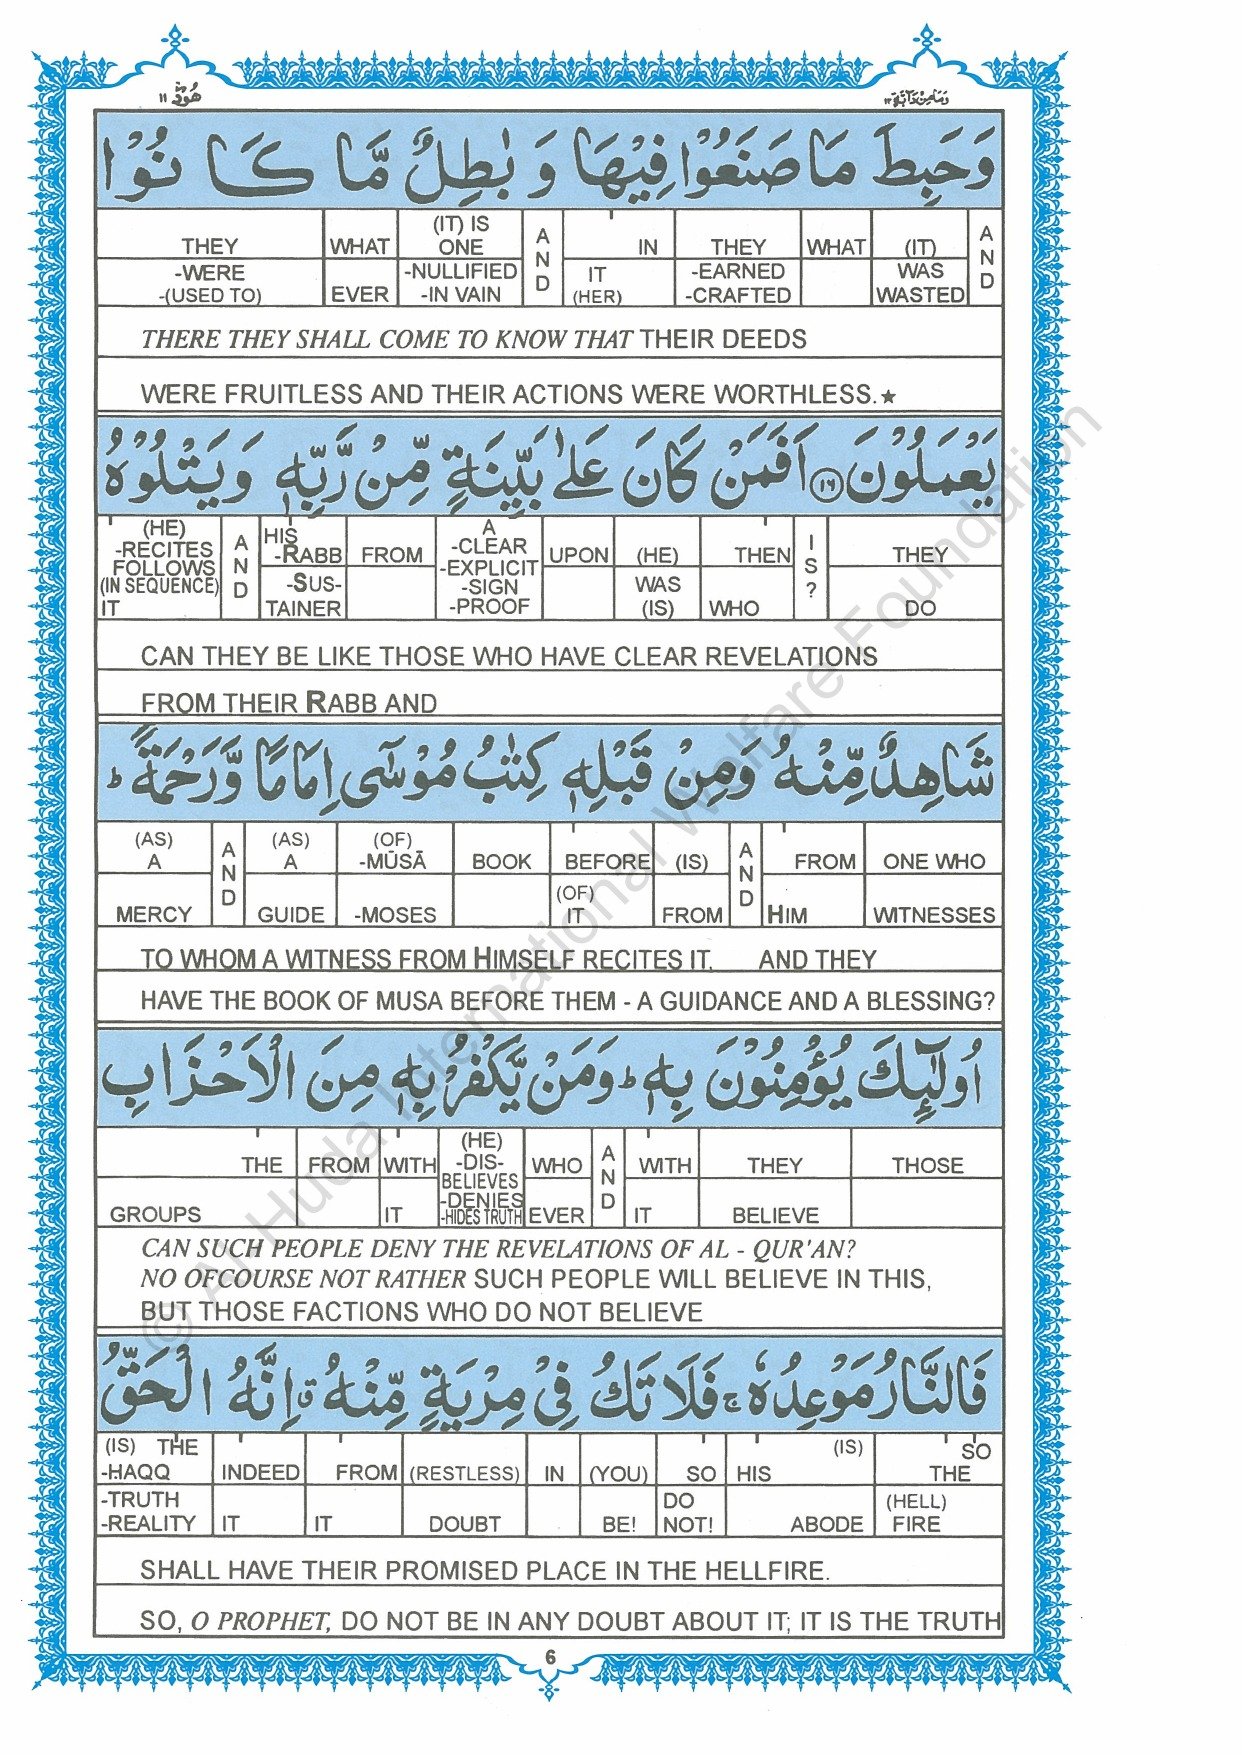 هُوْدٌ ١١
وَمَامِنْ دَآبَّة ١٢
وَحَبِطَ مَا صَنَعُوْا فِيْهَا وَ بٰطِلٌ مَّا كَا نُوْا
AND (IT) WAS WASTED WHAT THEY -EARNED -CRAFTED IN IT (HER) AND (IT) IS ONE -NULLIFIED -IN VAIN WHAT EVER THEY -WERE -(USED TO)
THERE THEY SHALL COME TO KNOW THAT THEIR DEEDS
WERE FRUITLESS AND THEIR ACTIONS WERE WORTHLESS.★
يَعْمَلُوْنَ ١٦ اَفَمَنْ كَانَ عَلٰى بَيِّنَةٍ مِّنْ رَّبِّهٖ وَيَتْلُوْهُ
THEY DO IS? THEN WHO (HE) WAS (IS) UPON A -CLEAR -EXPLICIT -SIGN -PROOF FROM HIS -RABB -SUS- TAINER AND (HE) -RECITES FOLLOWS (IN SEQUENCE) IT
CAN THEY BE LIKE THOSE WHO HAVE CLEAR REVELATIONS
FROM THEIR RABB AND
شَاهِدٌ مِّنْهُ وَمِنْ قَبْلِهٖ كِتٰبُ مُوْسٰٓى اِمَامًا وَّرَحْمَةً ؕ
ONE WHO WITNESSES FROM HIM AND (IS) FROM BEFORE (OF) IT BOOK (OF) -MŪSĀ -MOSES (AS) A GUIDE AND (AS) A MERCY
TO WHOM A WITNESS FROM HIMSELF RECITES IT. AND THEY
HAVE THE BOOK OF MUSA BEFORE THEM - A GUIDANCE AND A BLESSING?
اُولٰٓئِكَ يُؤْمِنُوْنَ بِهٖ ؕ وَمَنْ يَّكْفُرْ بِهٖ مِنَ الْاَحْزَابِ
THOSE THEY BELIEVE WITH IT AND WHO EVER (HE) -DIS- BELIEVES -DENIES -HIDES TRUTH WITH IT FROM THE GROUPS
CAN SUCH PEOPLE DENY THE REVELATIONS OF AL - QUR'AN?
NO OFCOURSE NOT RATHER SUCH PEOPLE WILL BELIEVE IN THIS,
BUT THOSE FACTIONS WHO DO NOT BELIEVE
فَالنَّارُ مَوْعِدُهٗ ۚ فَلَا تَكُ فِيْ مِرْيَةٍ مِّنْهُ ۗ اِنَّهُ الْحَقُّ
SO THE (HELL) FIRE (IS) HIS ABODE SO DO NOT! (YOU) BE! IN (RESTLESS) DOUBT FROM IT INDEED IT (IS) THE -HAQQ -TRUTH -REALITY
SHALL HAVE THEIR PROMISED PLACE IN THE HELLFIRE.
SO, O PROPHET, DO NOT BE IN ANY DOUBT ABOUT IT; IT IS THE TRUTH
6
© Al Huda International Welfare Foundation